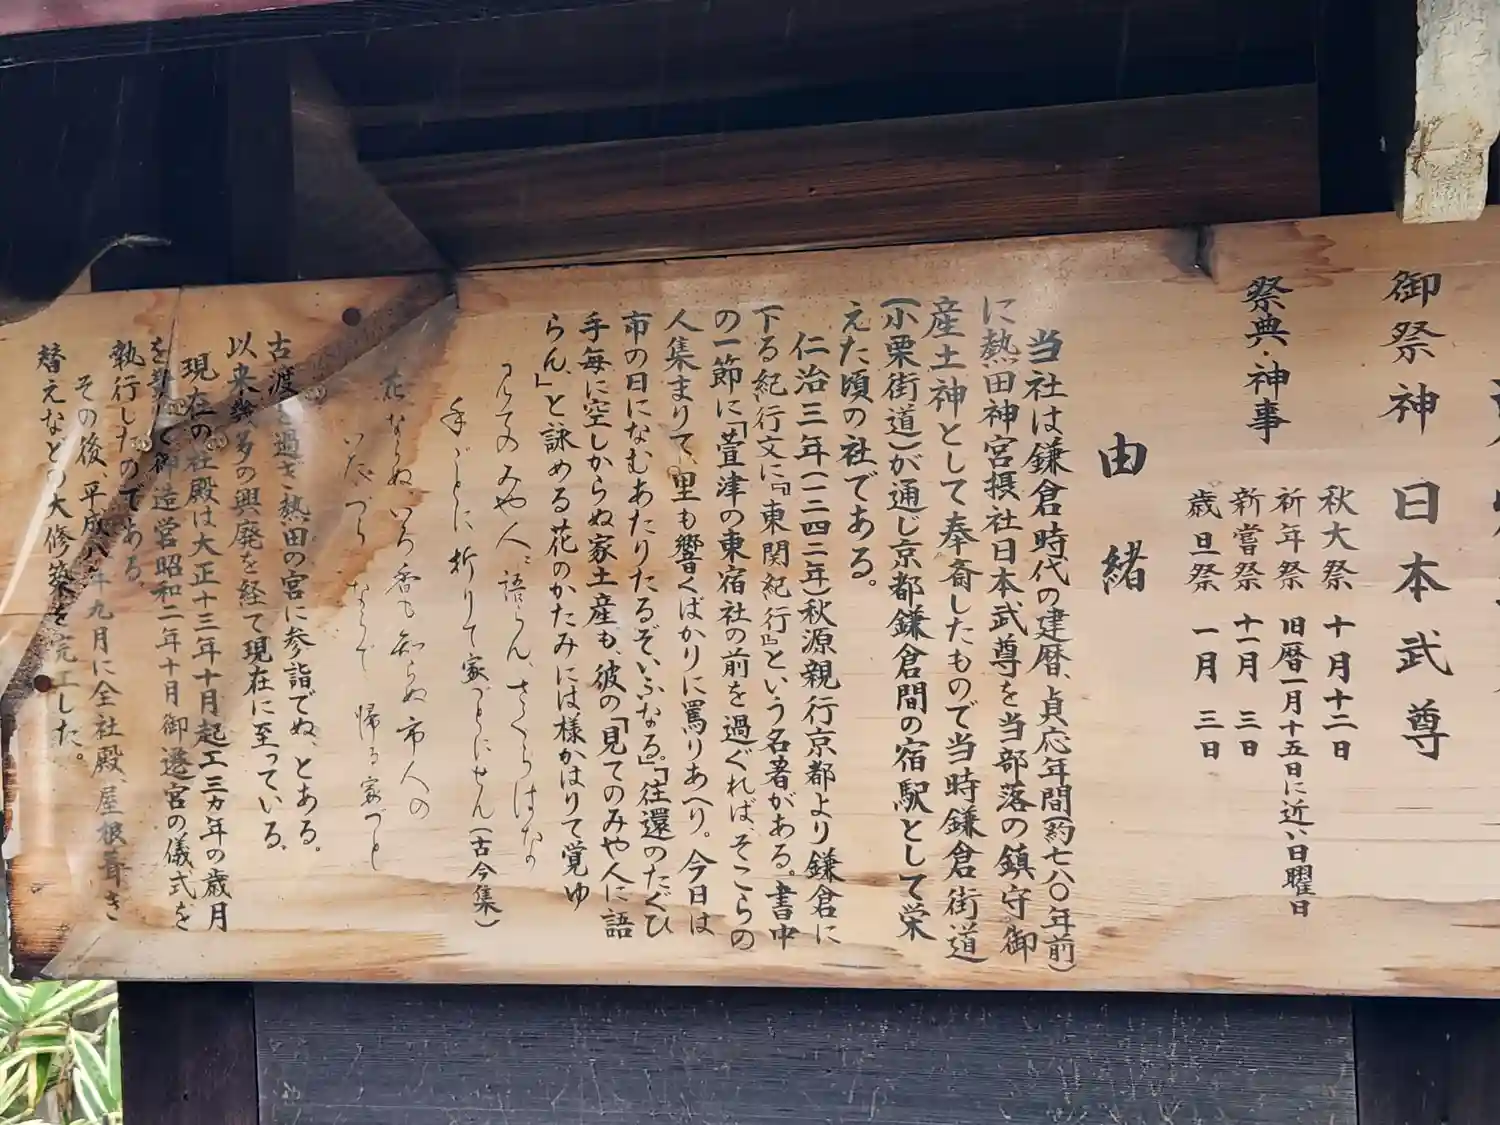 御祭神 日本武尊
祭典・神事
秋大祭 十月十二日
祈年祭 旧暦一月十五日に近い日曜日
新嘗祭 十一月 三日
歳旦祭 一月 三日
由緒
当社は鎌倉時代の建暦、貞応年間(約七八〇年前)
に熱田神宮摂社日本武尊を当部落の鎮守御
産土神として奉斎したもので当時鎌倉街道
(小栗街道)が通じ京都鎌倉間の宿駅として栄
えた頃の社である。
仁治三年(一二四二年)秋源親行京都より鎌倉に
下る紀行文に『東関紀行』という名著がある。書中
の一節に「萱津の東宿社の前を過ぐれば、そこらの
人集まりて、里も響くばかりに罵りあへり。今日は
市の日になむあたりたるぞいふなる。」「往還のたぐひ
手毎に空しからぬ家土産も、彼の「見てのみや人に語
らん、」と詠める花のかたみには様かはりて覚ゆ
みてのみや人に語らん、さくらはな
手ごとに折りて家づとにせん(古今集)
花ならぬいろ香も知らぬ市人の
いたづらならで帰る家づと
古渡を過ぎ熱田の宮に参詣でぬ、とある。
以来幾多の興廃を経て現在に至っている。
現在の社殿は大正十三年十月起工三ヵ年の歳月
を費して御造営昭和二年十月御遷宮の儀式を
執行したのである。
その後、平成八年九月に全社殿、屋根葺き
替えなどの大修築を完工した。